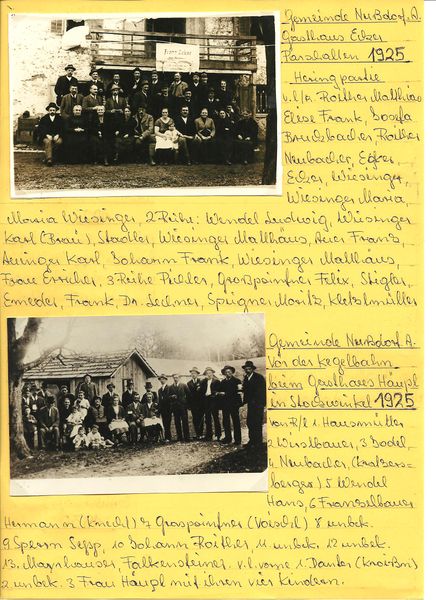 Gemeinde Nußdorf A.
Gasthaus Ecker
Parschallen 1925
Heringpartie
v.l/r. Roither Matthias
Elise Frank, Josefa
Roither
Neubacher,
Wiesinger,
Wiesinger Maria,
Maria Wiesinger, 2 Reihe, Wendel Ludwig, Wiesinger
Karl (Bräu), Stadler, Wiesinger Matthäus, Auer Franz,
Auinger Karl, Johann Frank, Wiesinger Matthäus,
Frau 3 Reihe Pichler, Großpointner Felix, Stigler,
Emeder, Frank, Dr. Lechner, Moritz, Kletzlmüller
Franz Ecker
Gemeinde Nußdorf A.
Vor der Kegelbahn
beim Gasthaus Häupl
in Stockwinkel 1925
von R/l 1. Hausmütter
2 Wirstbauer, 3 Bodel,
4 Neubacher,
berger) 5 Wendel
Hans, 6 Franzlbauer
Hermann (Knecht) 7 Grospointner 8 unbek.
9 Sperrn Sepp, 10 Johann Roither 11 unbek. 12 unbek.
13. Mayrhauser, Falkensteiner v.l. vorne 1. Danter
2 unbek. 3 Frau Häupl mit ihren vier Kindern.